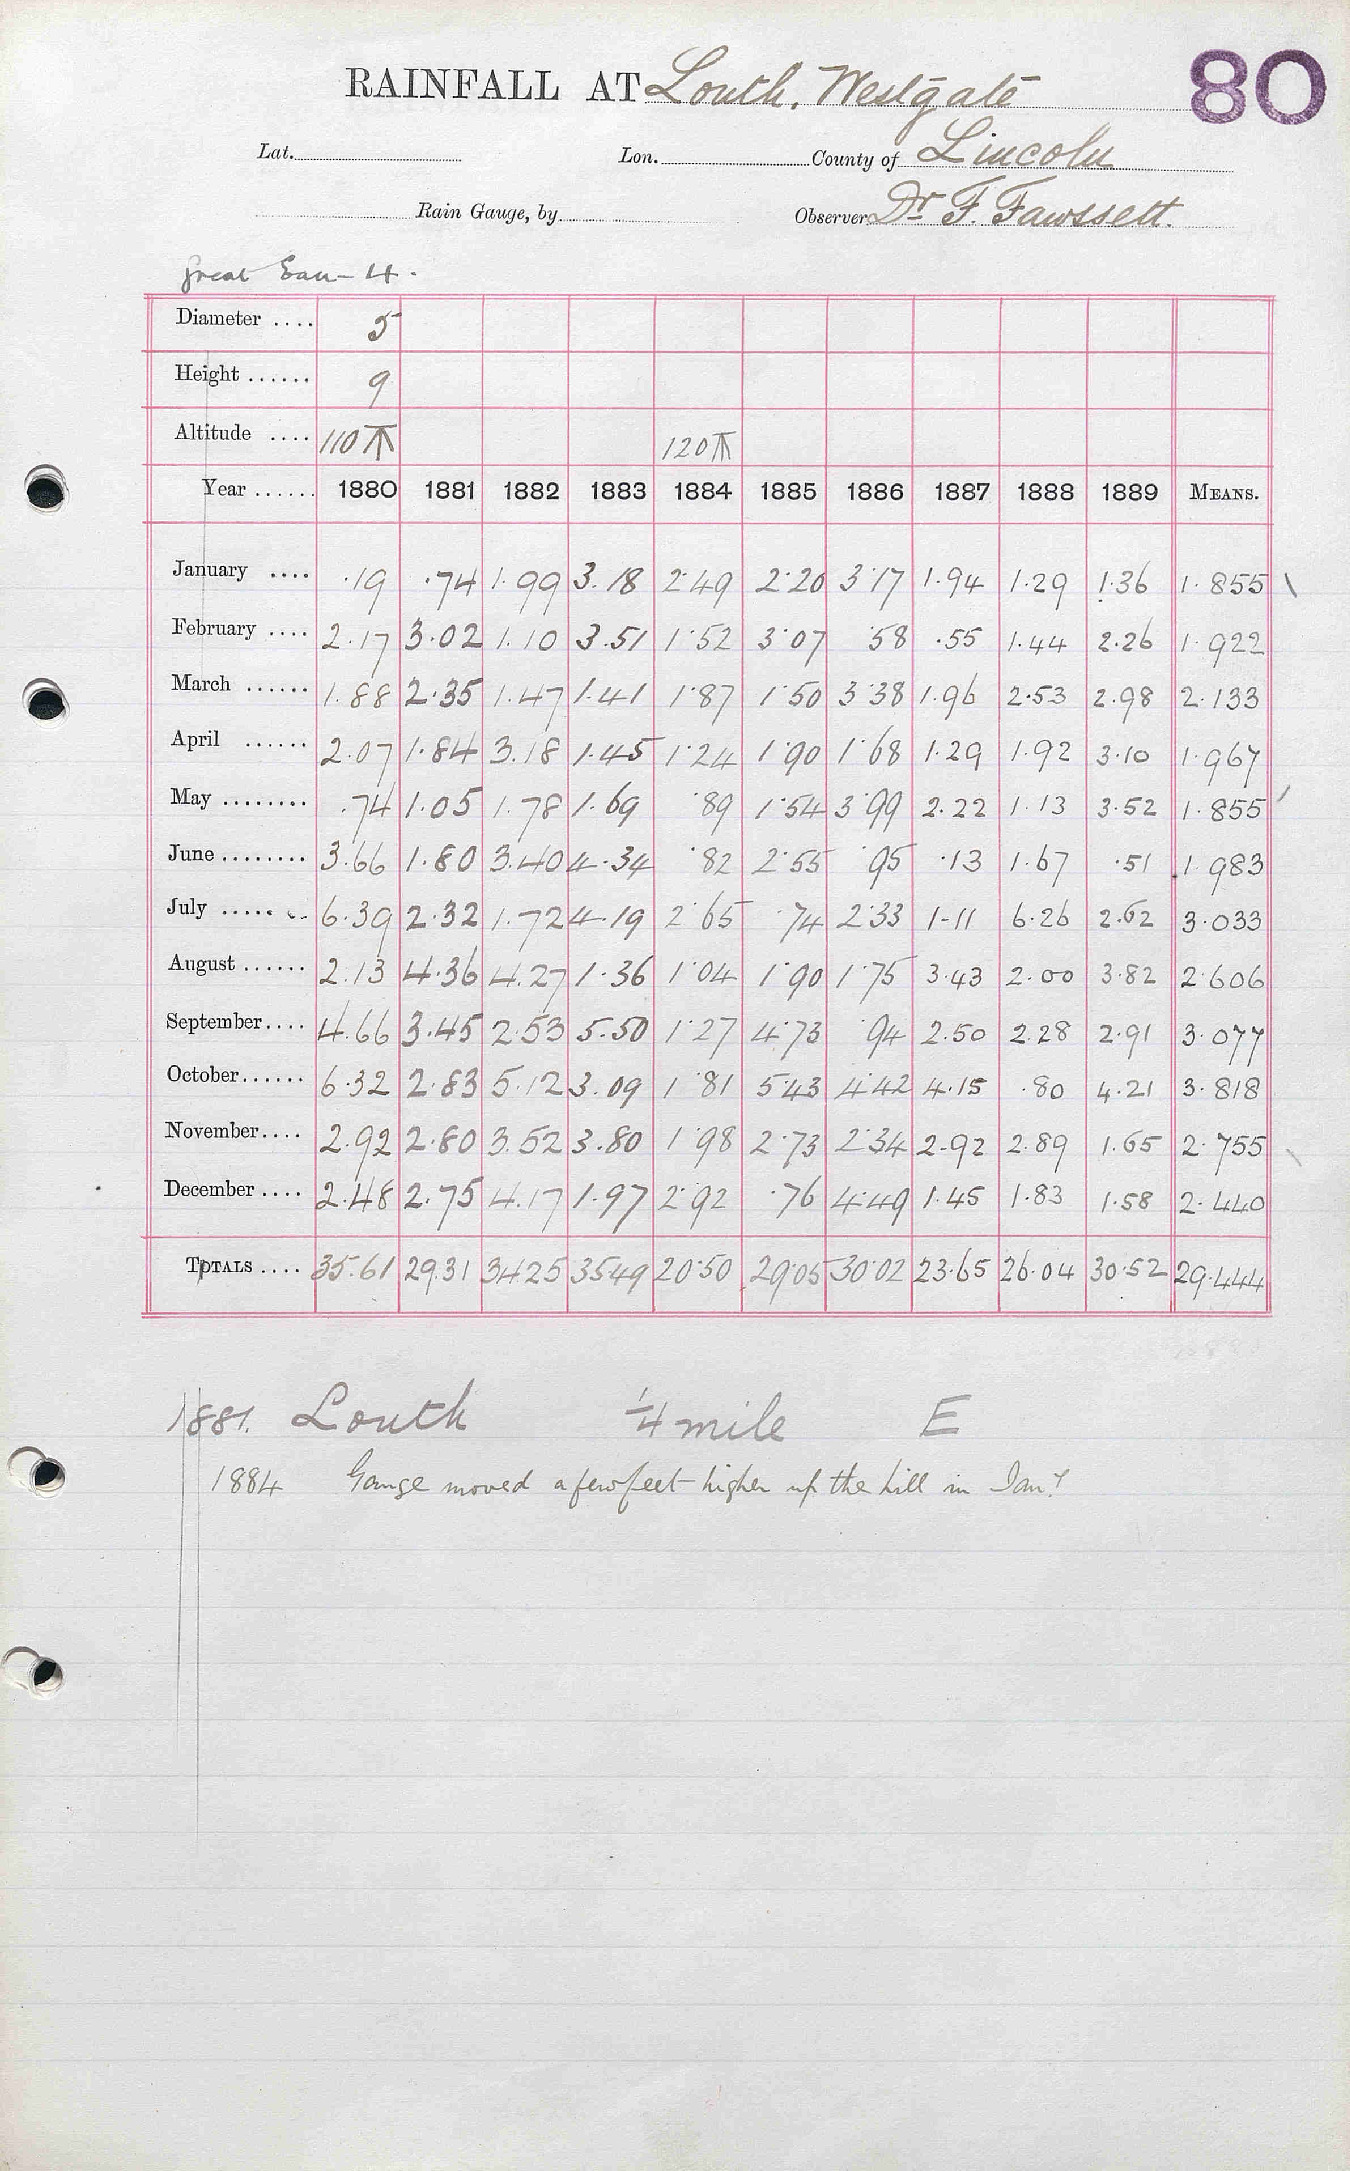 80
RAINFALL AT Louth, Westgate
Lat. Lon. County of Lincoln
Rain Gauge, by Observer Dr F. Fawssett.
Great Eau - 4.
Diameter .... 5
Height ...... 9
Altitude .... 110 ⚻ 120 ⚻
Year ...... 1880 1881 1882 1883 1884 1885 1886 1887 1888 1889 MEANS.
January .... .19 .74 1.99 3.18 2.49 2.20 3.17 1.94 1.29 1.36 1.855
February .... 2.17 3.02 1.10 3.51 1.52 3.07 .58 .55 1.44 2.26 1.922
March ...... 1.88 2.35 1.47 1.41 1.87 1.50 3.38 1.96 2.53 2.98 2.133
April ...... 2.07 1.84 3.18 1.45 1.24 1.90 1.68 1.29 1.92 3.10 1.967
May ........ .74 1.05 1.78 1.69 .89 1.54 3.99 2.22 1.13 3.52 1.855
June ........ 3.66 1.80 3.40 4.34 .82 2.55 .95 .13 1.67 .51 1.983
July ........ 6.39 2.32 1.72 4.19 2.65 .74 2.33 1.11 6.26 2.62 3.033
August ...... 2.13 4.36 4.27 1.36 1.04 1.90 1.75 3.43 2.00 3.82 2.606
September.... 4.66 3.45 2.53 5.50 1.27 4.73 .94 2.50 2.28 2.91 3.077
October...... 6.32 2.83 5.12 3.09 1.81 5.43 4.42 4.15 .80 4.21 3.818
November.... 2.92 2.80 3.52 3.80 1.98 2.73 2.34 2.92 2.89 1.65 2.755
December .... 2.48 2.75 4.17 1.97 2.92 .76 4.49 1.45 1.83 1.58 2.440
TOTALS .... 35.61 29.31 34.25 35.49 20.50 29.05 30.02 23.65 26.04 30.52 29.444
1881. Louth 1/4 mile E
1884 Gauge moved a few feet higher up the hill in Jany